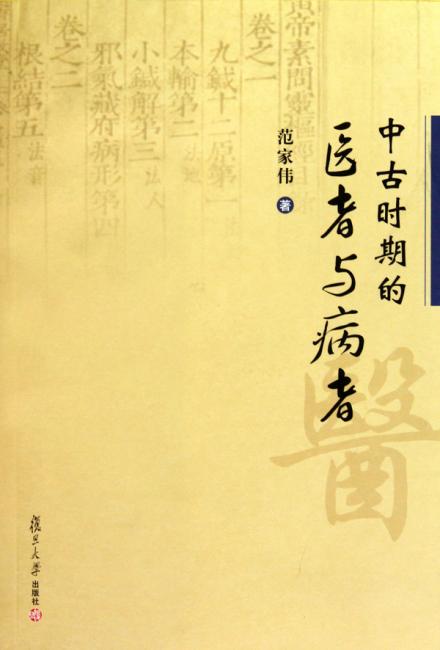 中古时期的
医者与病者
范家伟 著
醫
帝素問靈樞經目
卷之一
九鍼十二原第一
本輸第二 法地
小鍼解第三 法人
邪氣藏府病形第四
卷之二
根結第五 法音
復旦大學
出版社